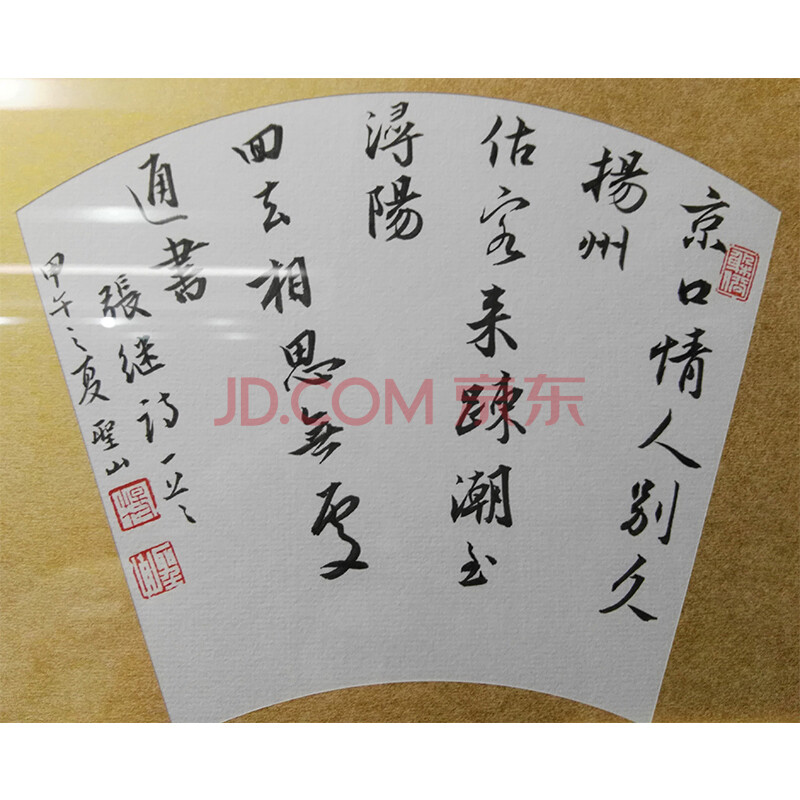 京口情人别久
揚州
估客来踈潮至
潯陽
回去相思無處
通書
張继诗一
甲午之夏 聖山
JD.COM 京东